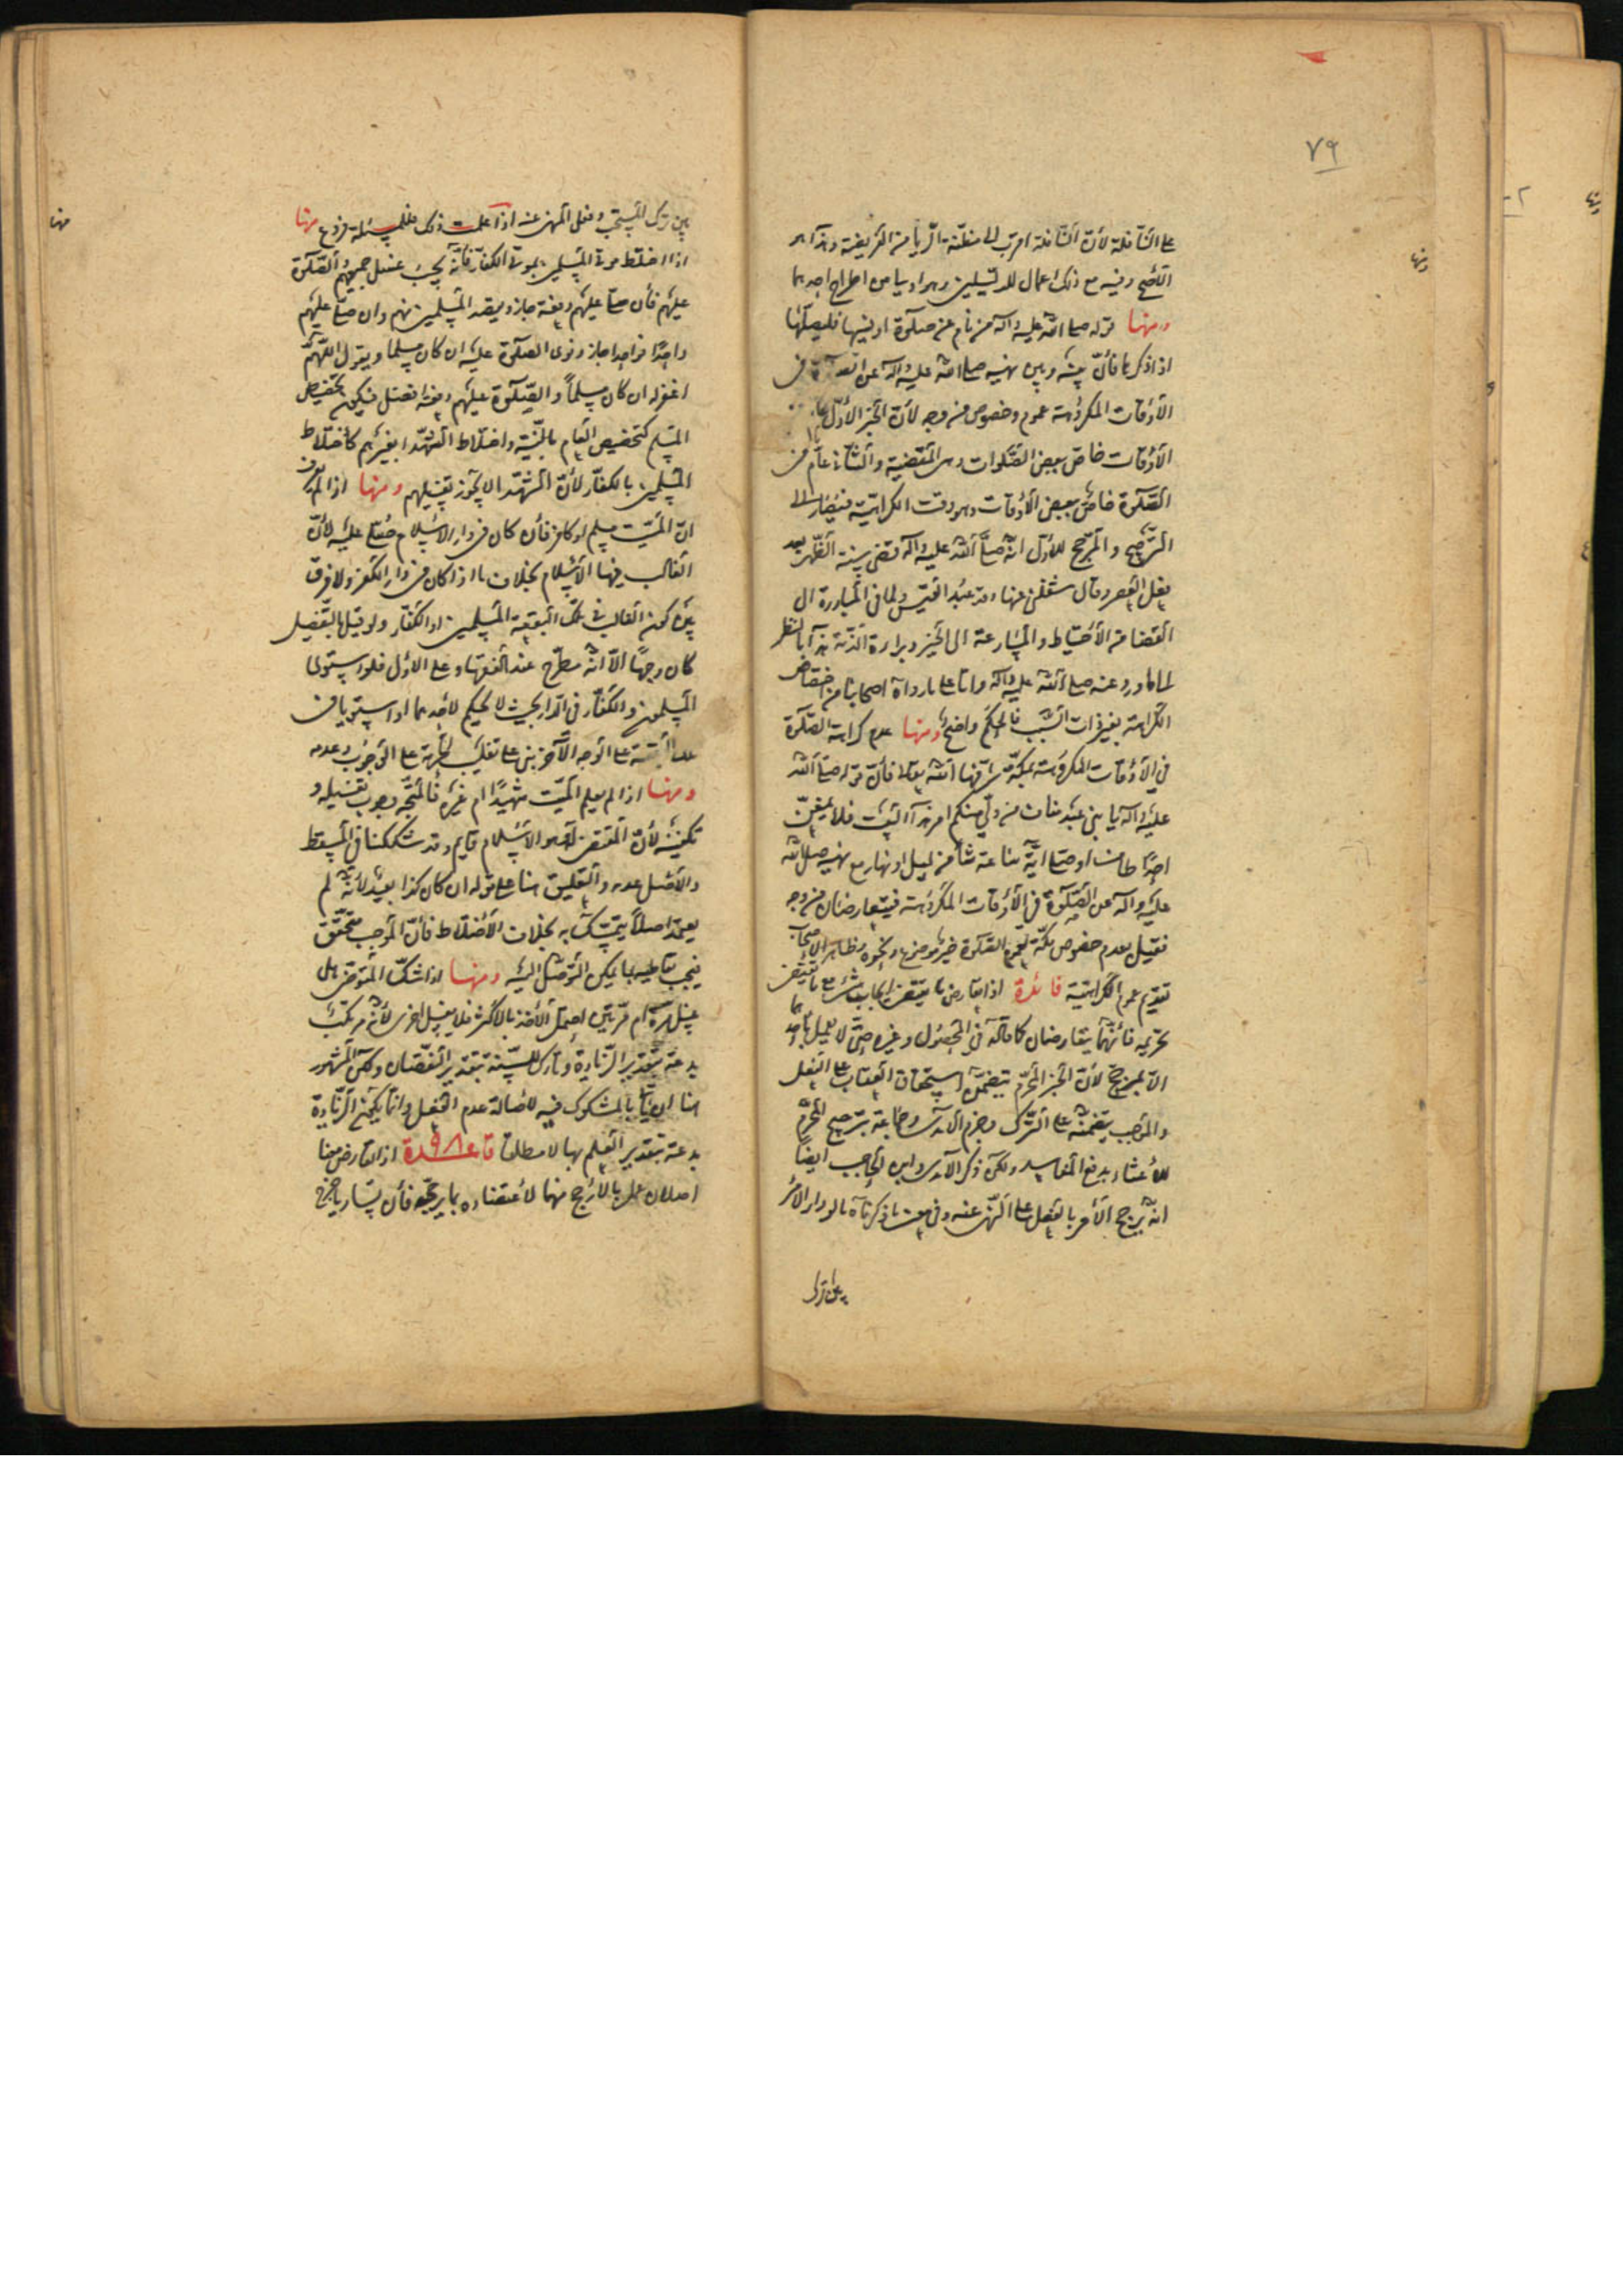 ٧٩
على النافلة لأن النافلة اقرب الى مظنة الريا من الفريضة وهذا هو
الأصح وفيه مع ذلك اعمال للدليلين وهو اولى من اطراح احدهما
ومنها قوله صلى الله عليه وآله من نام عن صلوة او نسيها فليصلها
اذا ذكرها فأن بينه وبين نهيه صلى الله عليه وآله عن الصلوة فى
الأوقات المكروهة عموم وخصوص من وجه لأن الخبر الأول عام فى
الأوقات خاص ببعض الصلوات وهى المقضية والثانى عام فى
الصلوة خاص ببعض الأوقات وهو وقت الكراهية فيصار الى
الترجيح والمرجح للأول انه صلى الله عليه وآله قضى سنة الظهر بعد
فعل العصر وقال شغلنى عنها وفد عبد القيس ولما فى المبادرة الى
القضا من الأحتياط والمسارعة الى الخير وبراءة الذمة هذا بالنظر
الى ما ورد عنه صلى الله عليه وآله واما على ما رواه اصحابنا من اختصاص
الكراهة بغير ذات السبب فالحكم واضح ومنها عدم كراهة الصلوة
فى الأوقات المكروهة بمكة شرفها الله تعالى فأن قوله صلى الله
عليه وآله يا بنى عبد مناف من ولى منكم امر هذا البيت فلا يمنعن
احدًا طاف او صلى اية ساعة شاء من ليل او نهار مع نهيه صلى الله
عليه وآله عن الصلوة فى الأوقات المكروهة فيتعارضان من وجه
فقيل بعدم خصوص مكة لعموم الصلوة خير موضوع ونحوه وظاهر الأصحاب
تقديم عموم الكراهية فائدة اذا تعارض ما يقتضى ايجاب شئ مع ما يقتضى
تحريمه فأنهما يتعارضان كما قاله فى المحصول وغيره حتى لا يعمل باحدهما
الا بمرجح لأن الخبر المحرم يتضمن استحقاق العقاب على الفعل
والموجب يتضمنه على الترك وجزم الآمدى وجماعة بترجيح المحرم
للأعتناء بدفع المفاسد ولكن ذكر الآمدى وابن الحاجب ايضًا
انه يرجح الأمر بالفعل على النهى عنه وفى معنى ما ذكرناه ما لو دار الأمر
بين ترك
بين ترك المستحب وفعل المنهى عنه اذا علمت ذلك فللمسئلة فروع منها
اذا اختلط موتى المسلمين بموتى الكفار فأنه يجب غسل جميعهم والصلوة
عليهم فأن صلى عليهم دفعة جاز ويقصد المسلمين منهم وان صلى عليهم
واحدًا فواحدا جاز ونوى الصلوة عليه ان كان مسلما ويقول اللهم
اغفر له ان كان مسلمًا والصلوة عليهم دفعة افضل فيكون تخصيص
المسلم كتخصيص العام بالنية واختلاط الشهدا بغيرهم كأختلاط
المسلمين بالكفار لأن الشهدا لا يجوز تغسيلهم ومنها اذا لم يعرف
ان الميت مسلم او كافر فأن كان فى دار الاسلام صلى عليه لأن
الغالب فيها الأسلام بخلاف ما اذا كان فى دار الكفر ولا فرق
بين كون الغالب فى تلك البقعة المسلمين او الكفار ولو قيل بالتفصيل
كان وجهًا الا انه مطرح عند الفقهاء وعلى الأول فلو استولى
المسلمون والكفار فى الدار بحيث لا يحكم لأحدهما او استويا فى
على الوجه الآخر بنى على تغليب الحرمة على الوجوب وعدمه
ومنها اذا لم يعلم الميت شهيدًا ام غيره فالمتجه وجوب تغسيله و
تكفينه لأن المقتضى لهو الأسلام قايم وقد شككنا فى المسقط
والأصل عدمه والتعليق هنا على قوله ان كان كذا بعيد لأنه لم
يعهد اصلاً يتمسك به بخلاف الأختلاط فأن الموجب متحقق
فيجب تعاطيه بما يمكن التوصل اليه ومنها اذا شك المتوضى هل
غسل مرة ام مرتين احتمل الأخذ بالاكثر فلا يغسل اخرى لأنه مرتكب
بدعة بتقدير الزيادة وتارك للسنة بتقدير النقصان ولكن المشهور
هنا ان يأتى بالمشكوك فيه لأصالة عدم الفعل وانما يكون الزيادة
بدعة بتقدير العلم بها لا مطلقا قاعدة ٩٨ اذا تعارض معنا
اصلان عمل بالارجح منهما لأعتضاده بما يرجحه فأن تساويا خرج
منها
ومنها